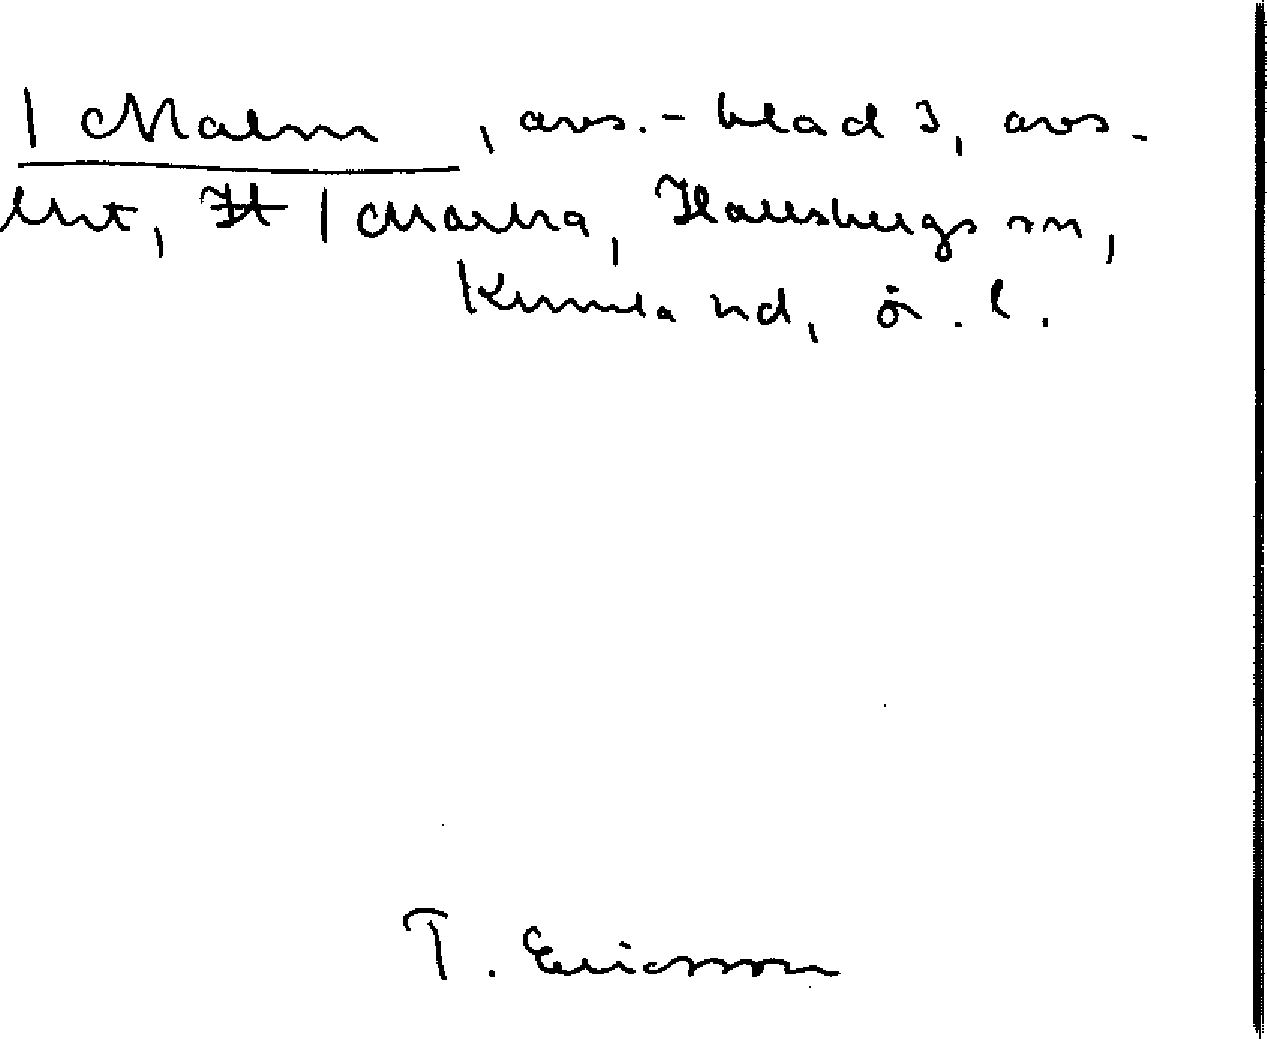 | Malm, avs.-blad 3, avs.-
litt, H | Marka, Hallsbergs sn,
Kumla hd, ö. l.
T. Ericsson